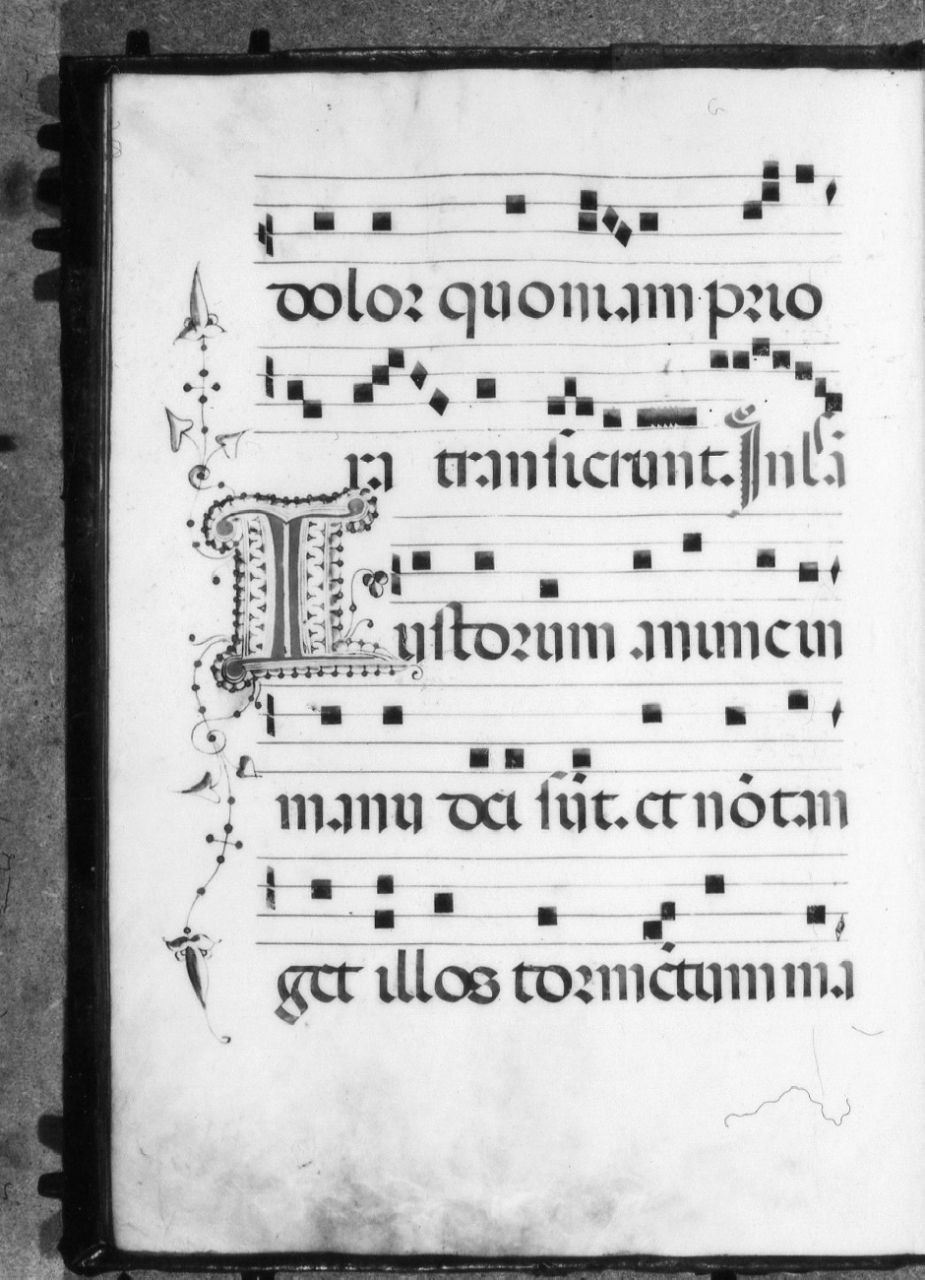 dolor quoniam prio
ra transierunt. In scã
Iustorum anime in
manu dei sũt. et nõ tan
get illos tormẽtum ma